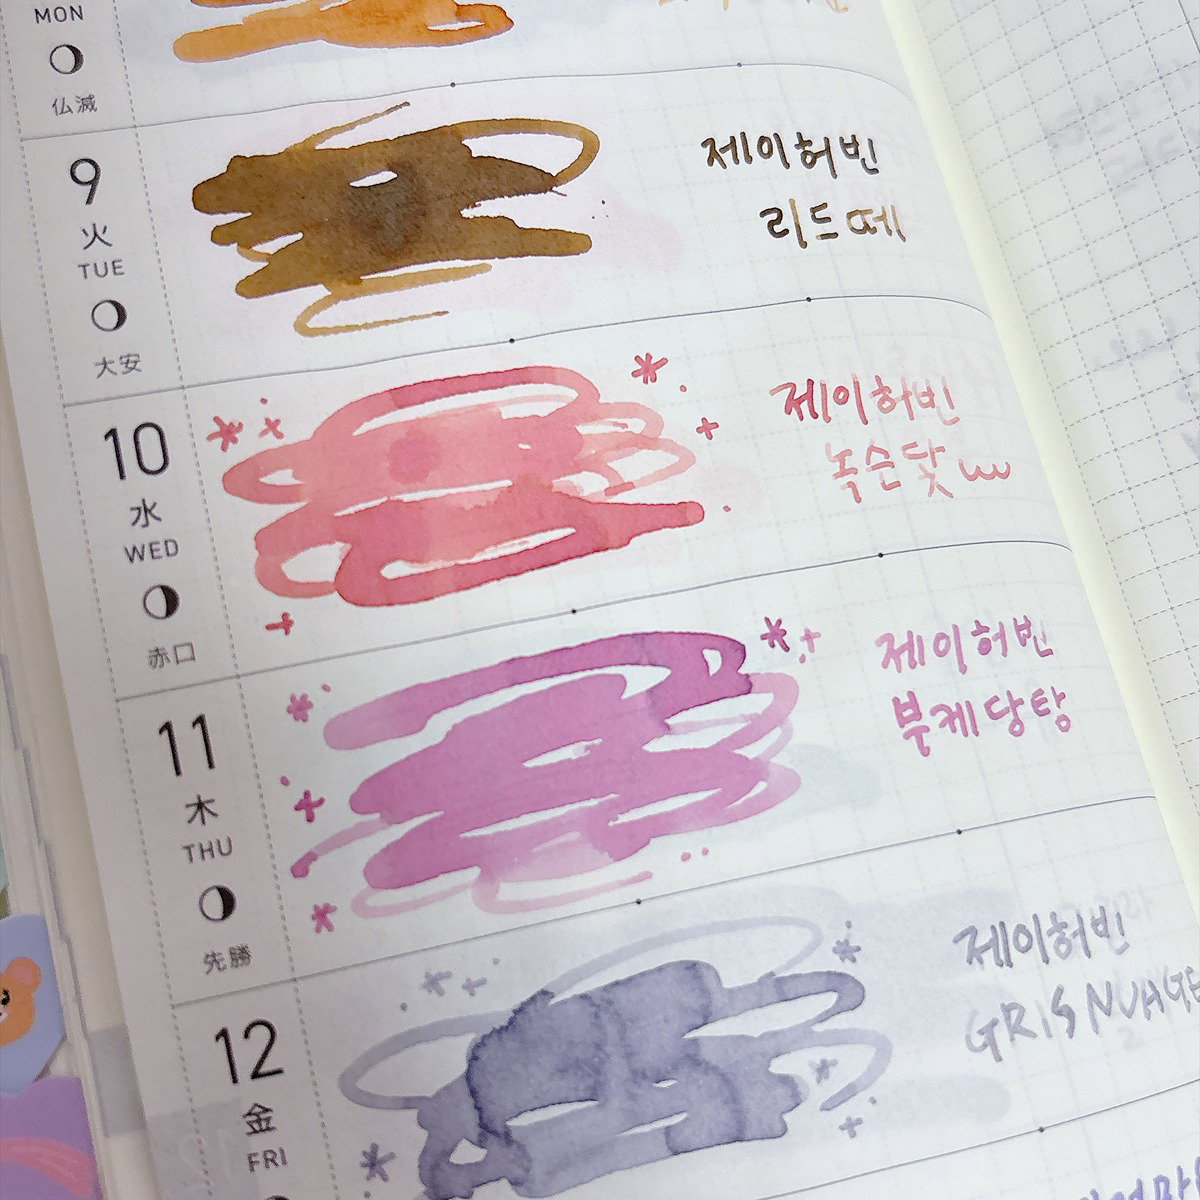 MON
仏滅
9
火
TUE
大安
제이허빈
리드떼
10
水
WED
赤口
제이허빈
녹슨닻
11
木
THU
先勝
제이허빈
부케당탕
12
金
FRI
제이허빈
GRIS NUAGE